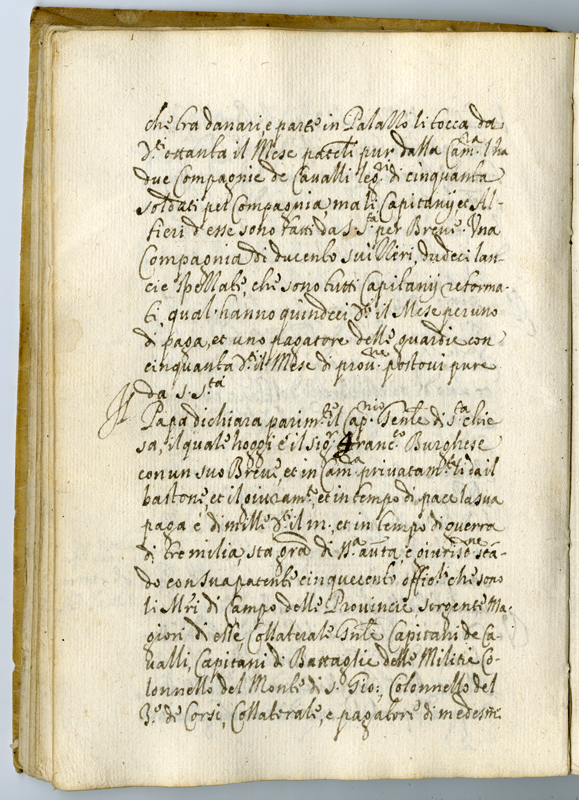 che tra danari, e parte in Palazzo li tocca da
d.ti ottanta il Mese pateli pur dalla Cam.ra. Ha
due Compagnie de Cavalli leg.ri di cinquanta
soldati per Compagnia, ma li Capitanij et Al-
fieri d'esse sono fatti da S. S.tà per Breve. Una
Compagnia di ducento suizzeri, dudeci lan-
cie spezzate, che sono tutti Capitanij reforma-
ti, quali hanno quindeci d.ti il Mese per uno
di paga, et uno pagatore delle guardie con
cinquanta d.ti il Mese di prov.ne postovi pure
da S. S.tà
Il Papa dichiara parim.te il Cap.nio Gen.te di s.ta chie
sa, il quale hoggi è il Sig.r Franc.o Burghese
con un suo Breve, et in Cam.ra privatam.te li dà il
bastone, et il giuram.to, et in tempo di pace la sua
paga è di mille d.ti il m., et in tempo di guerra
di tremilia, sta gra di autta, e giurisd.ne
do con sua patente cinquecento offic.li che sono
li Mri di Campo delle Provincie Sergente Ma-
giori di esse, Collaterale Gnle Capitani de Ca-
valli, Capitani di Battaglie delle Militie Co-
lonnello del Monte di S. Gio:, Colonnello del
3.o de Corsi, Collaterale, e pagatore di medesmi